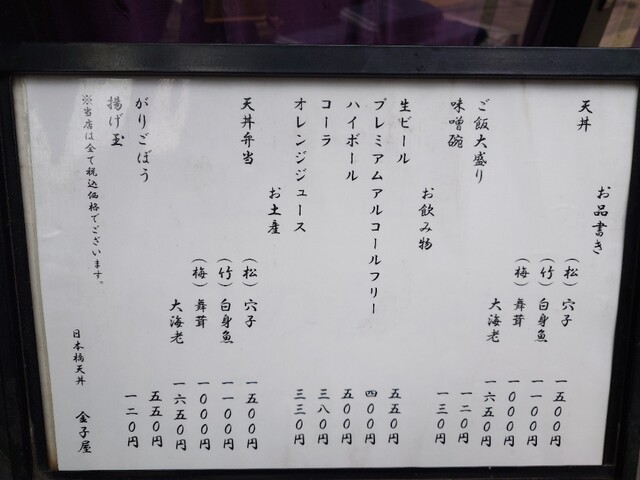 お品書き
天丼
(松)穴子 一五〇〇円
(竹)白身魚 一一〇〇円
(梅)舞茸 一〇〇〇円
大海老 一六五〇円
ご飯大盛り 一二〇円
味噌碗 一三〇円
お飲み物
生ビール 五五〇円
プレミアムアルコールフリー 四〇〇円
ハイボール 五〇〇円
コーラ 三八〇円
オレンジジュース 三三〇円
お土産
天丼弁当
(松)穴子 一五〇〇円
(竹)白身魚 一一〇〇円
(梅)舞茸 一〇〇〇円
大海老 一六五〇円
がりごぼう 五五〇円
揚げ玉 一二〇円
※当店は全て税込価格でございます。
日本橋天丼 金子屋